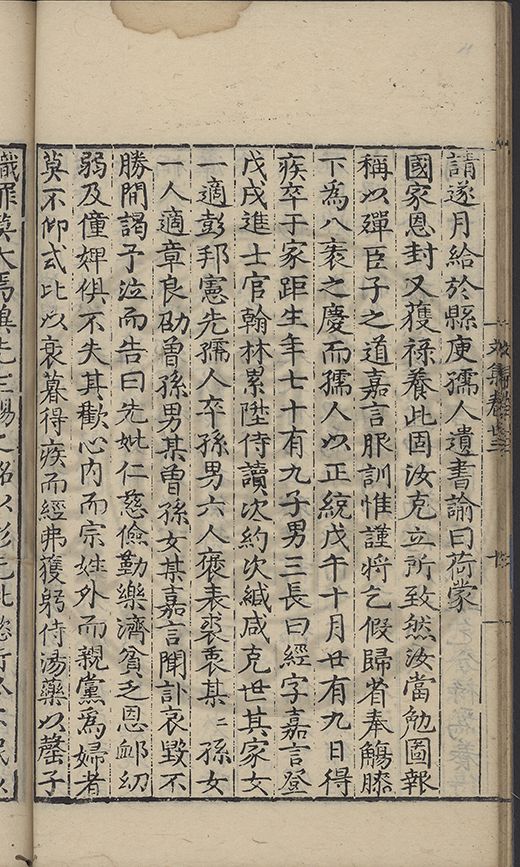 請遂月給於縣庾孺人遺書諭曰荷蒙
國家恩封又獲祿養此固汝克立所致然汝當勉圖報
稱以殫臣子之道嘉言服訓惟謹將乞假歸省奉觴膝
下為八袠之慶而孺人以正統戊午十月廿有九日得
疾卒于家距生年七十有九子男三長曰經字嘉言登
戊戌進士官翰林累陞侍讀次約次緘咸克世其家女
一適彭邦憲先孺人卒孫男六人褒表裘裛某〻孫女
一人適章良劭曾孫男某曽孫女某嘉言聞訃哀毀不
勝間謁予泣而告曰先妣仁慈儉勤樂濟貧乏恩卹幼
弱及僮婢俱不失其歡心內而宗姓外而親黨為婦者
莫不仰式比以衰暮得疾而經弗獲躬侍湯藥以罄子
職罪莫大焉
文集卷